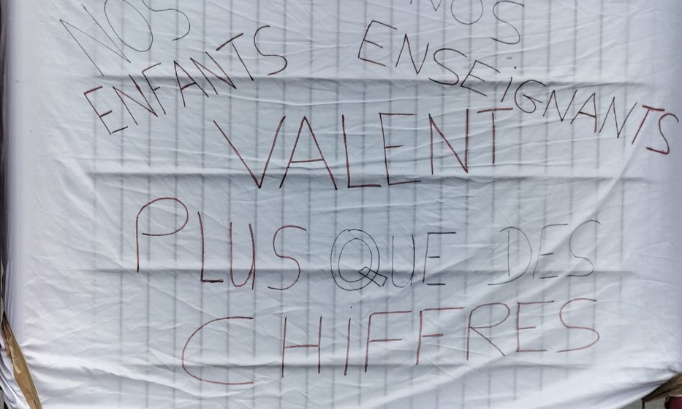 NOS NOS
ENFANTS ENSEiGNANTS
VALENT
PLUS QUE DES
CHiFFRES